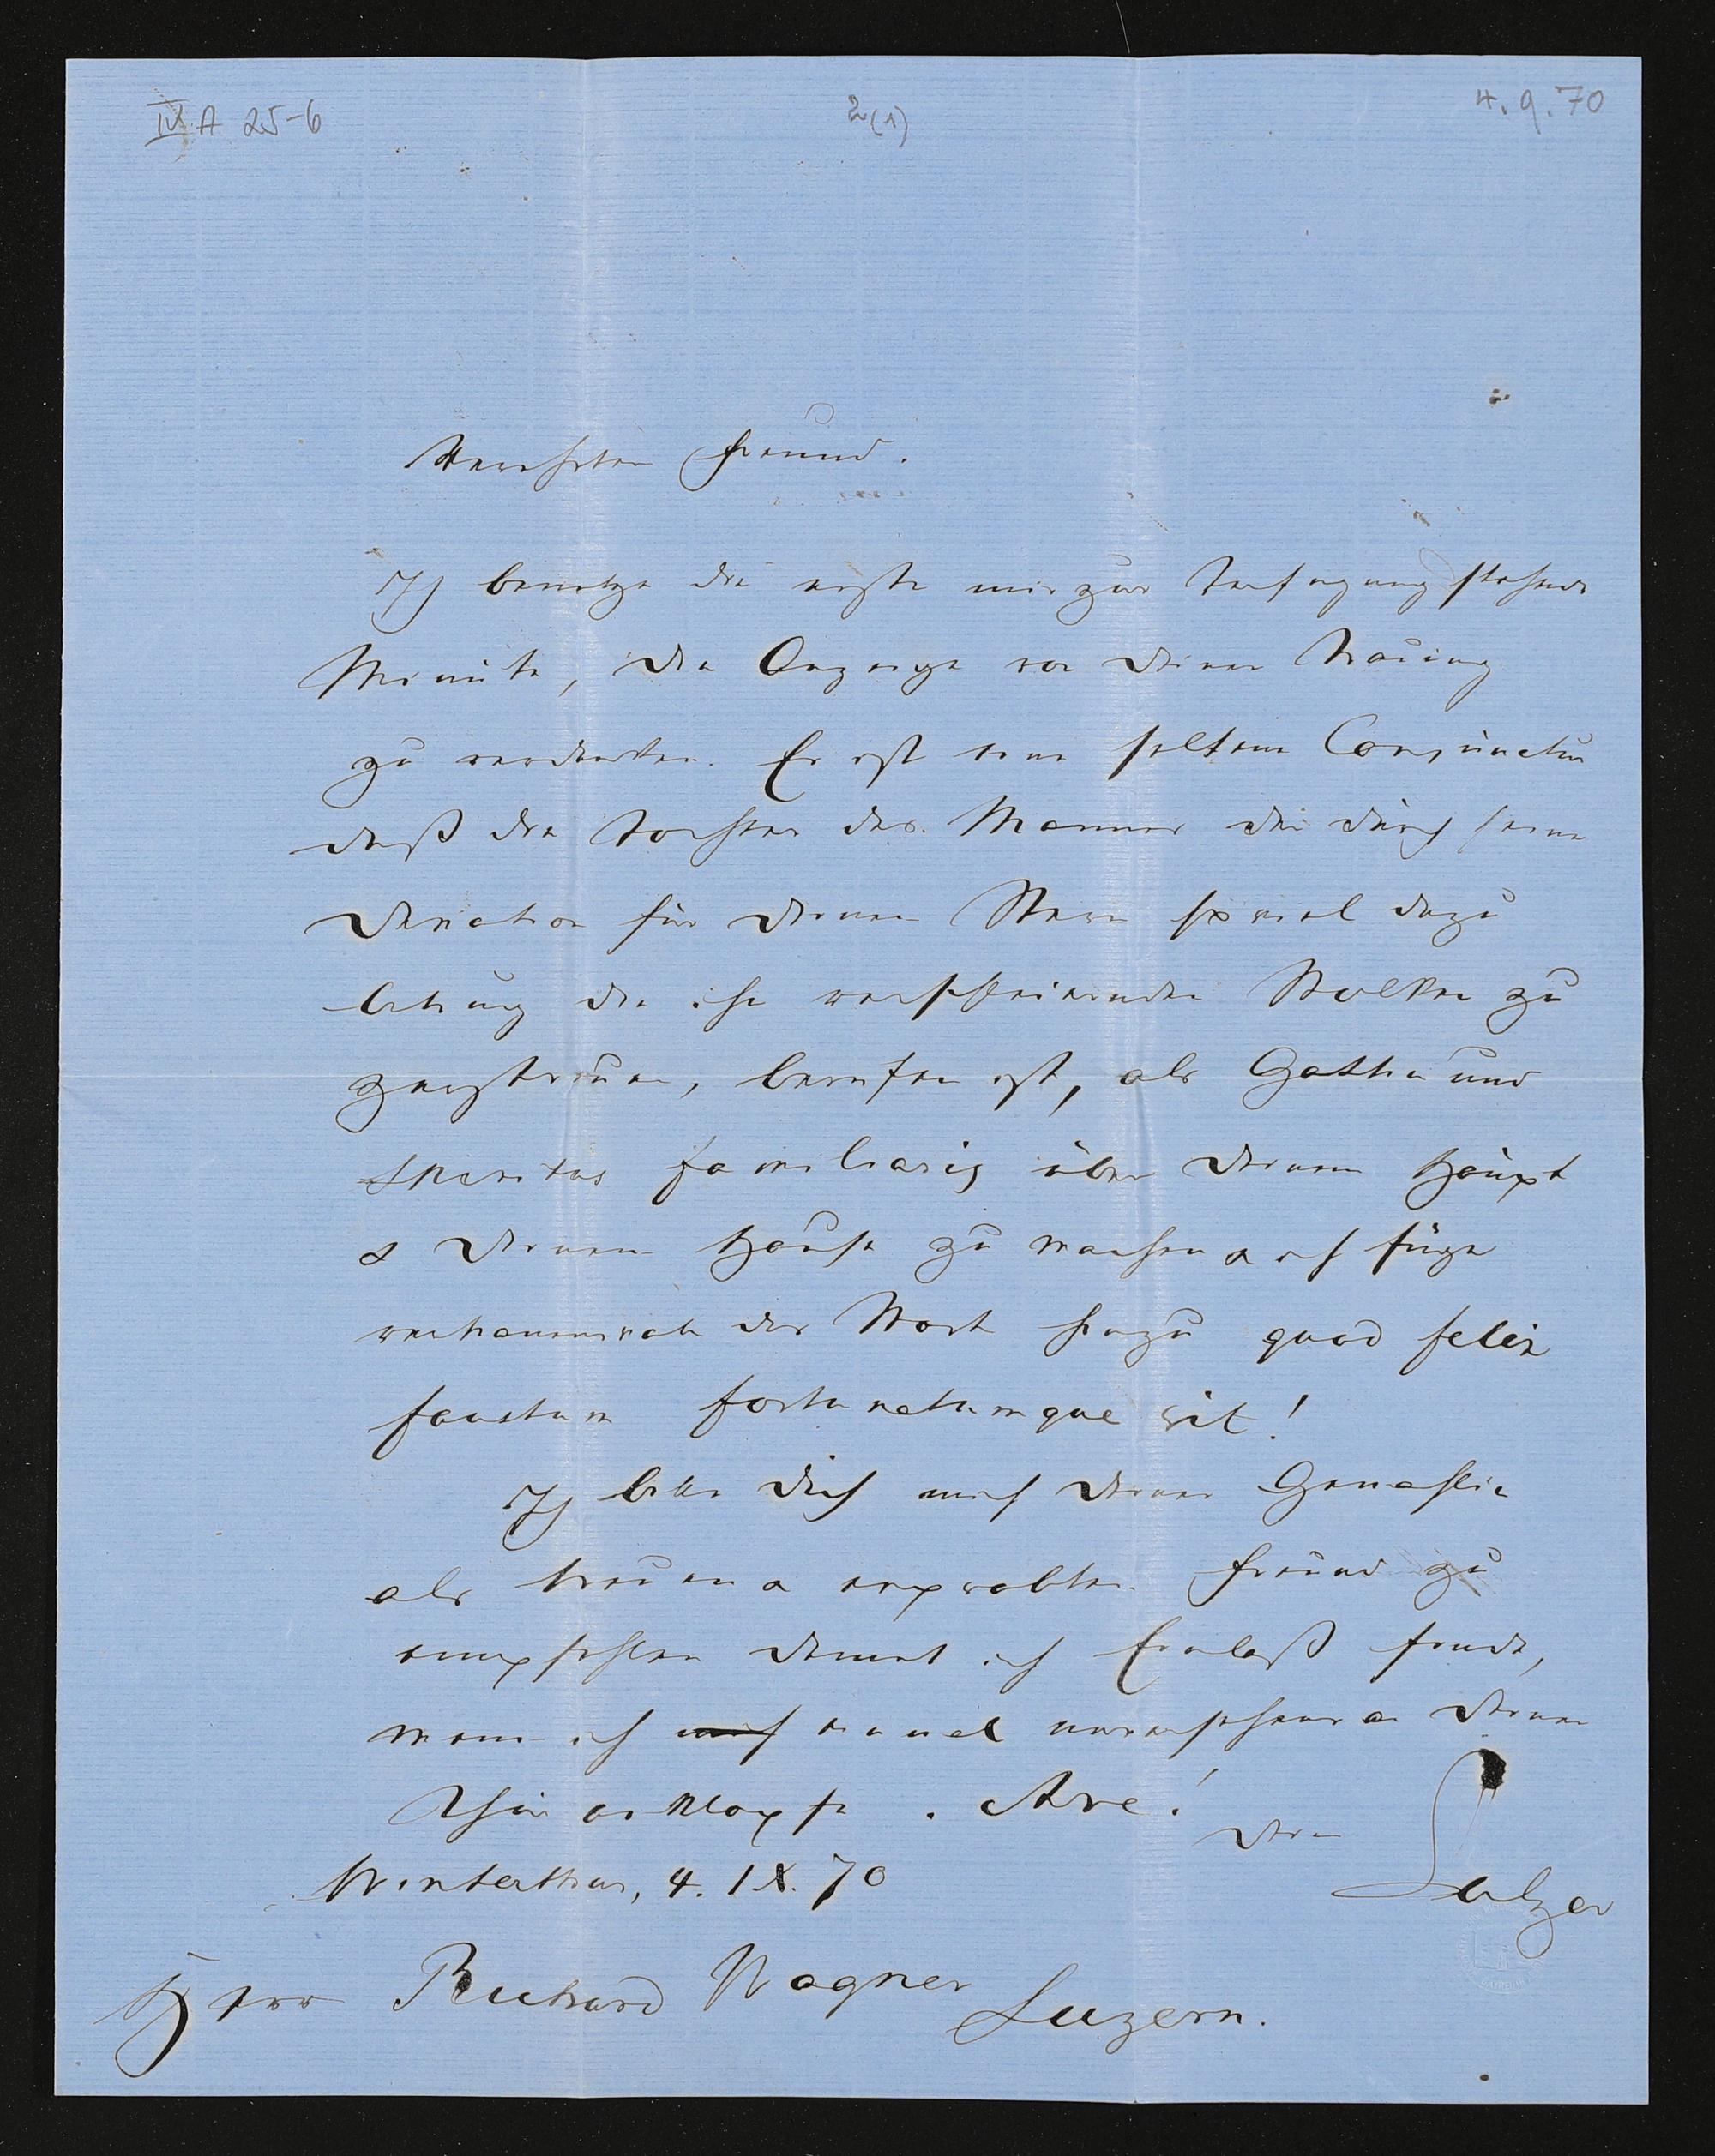 IV A 25-6
2(1)
4.9.70
Verehrter Freund.
Ich benutze die erste mir zur Verfügung stehende
Minute, die Anzeige von Deiner Trauung
zu verdanken. Es ist eine seltene Conjunctur
daß die Tochter des Mannes die durch seine
Devotion für Deinen Stern so viel dazu
beitrug die ihn verschleiernden Wolken zu
zerstreuen, berufen ist, als Gattin und
Spiritus familiaris über Deinem Haupt
& Deinem Hause zu wachen & ich füge
vertrauensvoll das Wort hinzu quod felix
faustum fortunatumque sit!
Ich bitte Dich mich Deiner Gemahlin
als treuen & erprobten Freund zu
empfehlen damit ich Einlaß finde,
wenn ich einmal unversehens an Deine
Thür anklopfe. Ave!
Dein
Sulzer
Winterthur, 4. IX. 70
Herrn Richard Wagner
Luzern.